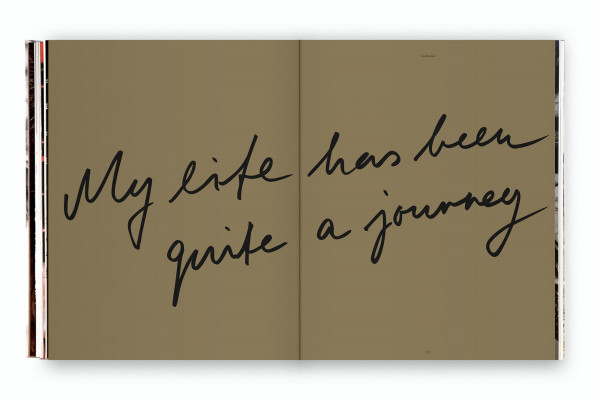 My life has been
quite a journey